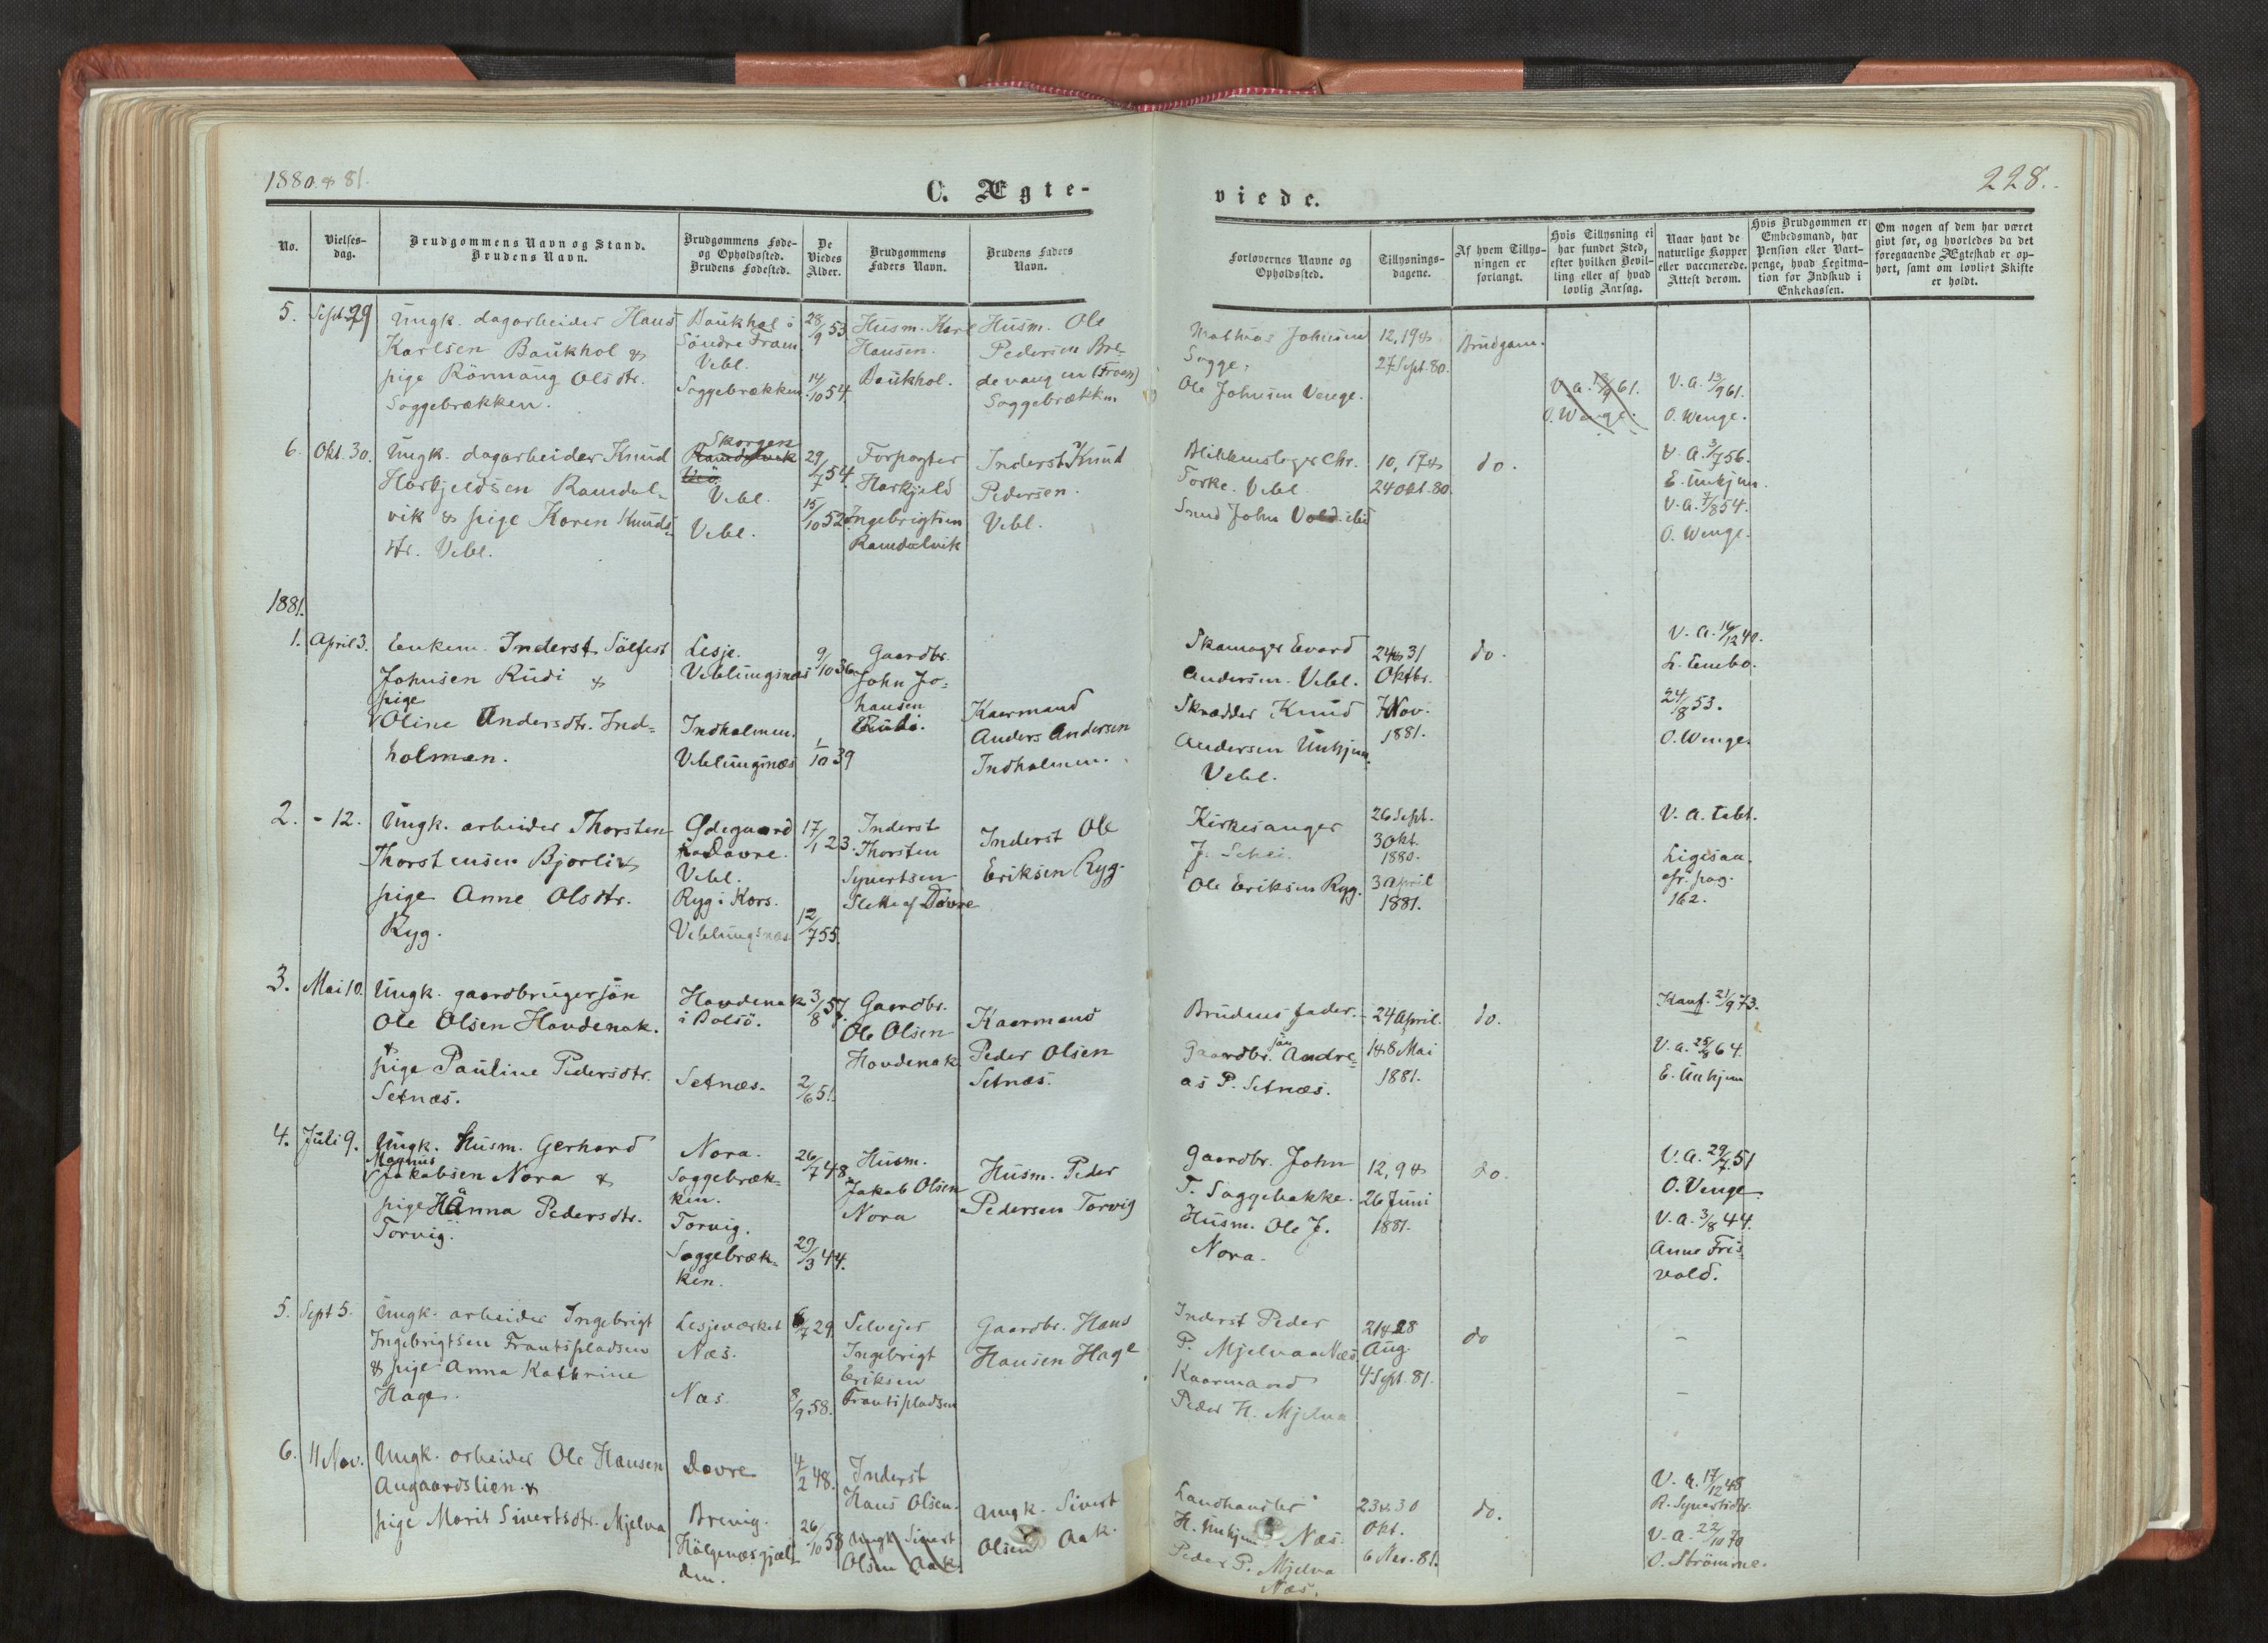 1880 & 81.
C. Ægte-
viede.
228.
No.
Vielses-
dag.
Brudgommens Navn og Stand.
Brudens Navn.
Brudgommens Føde-
og Opholdssted.
Brudens Fødested.
De
Viedes
Alder.
Brudgommens
Faders Navn.
Brudens Faders
Navn.
Forlovernes Navne og
Opholdssted.
Tillysnings-
dagene.
Af hvem Tillys-
ningen er
forlangt.
Hvis Tillysning ei
har fundet Sted,
efter hvilken Bevil-
ling eller af hvad
lovlig Aarsag.
Naar havt de
naturlige Kopper
eller vaccinerede.
Attest derom.
Hvis Brudgommen er
Embedsmand, har
Pension eller Vart-
penge, hvad Legitima-
tion for Indskud i
Enkekassen.
Om nogen af dem har været
givt før, og hvorledes da det
foregaaende Ægteskab er op-
hørt, samt om lovligt Skifte
er holdt.
5.
Sept. 29
Ungk. dagarbeider Hans
Karlsen Baukhol &
pige Rönnaug Olsdtr.
Soggebrækken.
Baukhol i
Söndre Fraen
Vebl.
Soggebrækken
28/9 53
14/10 54.
Husm. Karl
Hansen
Baukhol.
Husm. Ole
Pedersen Bre-
devangen (Froen)
Soggebrækken
Mathias Johnsen
Sogge,
Ole Johnsen Venge.
12, 19 &
27 Sept. 80.
Brudgom.
V. a. 13/9 61.
O. Wenge.
V. a. 13/9 61.
O. Wenge.
6.
Okt. 30.
Ungk. dagarbeider Knud
Harkjeldsen Ramdal-
vik & pige Karen Knuds-
dtr. Vebl.
Skorgen
Vebl.
Vebl.
29/7 54.
15/10 52.
Forpagter
Harkjeld
Ingebrigtsen
Ramdalvik
Inderst Knud
Pedersen.
Vebl.
Blikkenslager Chr.
Torke. Vebl.
Smed John Vold. ibid
10, 17 &
24 Okt. 80.
do.
V. a. 3/7 56.
E. Unhjem.
V. a. 7/8 54.
O. Wenge.
1881.
1.
April 3.
Enkem. Inderst Sölfest
Johnsen Rudi &
pige
Oline Andersdtr. Ind-
holmen.
Lesje.
Veblungsnæs
Indholmen.
Veblungsnæs
9/10 36
1/10 39
Gaardbr.
John Jo-
hansen
Rudi.
Kaarmand
Anders Andersen
Indholmen.
Skomager Evard
Andersen. Vebl.
Skrædder Knud
Andersen Unhjem.
Vebl.
24 & 31
Oktbr.
7 Nov.
1881.
do.
V. a. 16/12 40.
L. Enebo.
24/8 53.
O. Wenge.
2.
- 12.
Ungk. arbeider Thorsten
Thorstensen Bjorli &
pige Anne Olsdtr.
Ryg.
Ödegaard
Dovre.
Vebl.
Ryg i Kors.
Veblungsnæs
17/1 23.
12/7 55.
Inderst
Thorsten
Syvertsen
Slette af Dovre
Inderst Ole
Eriksen Ryg.
Kirkesanger
J. Schei.
Ole Eriksen Ryg.
26 Sept.
3 Okt.
1880.
3 April
1881.
V. a. tabt.
Ligesaa.
cfr. pag.
162.
3.
Mai 10.
Ungk. gaardbrugersön
Ole Olsen Hovdenak.
&
pige Pauline Pedersdtr.
Setnæs.
Hovdenak
i Bolsö.
Setnæs.
3/8 57.
2/6 51.
Gaardbr.
Ole Olsen
Hovdenak.
Kaarmand
Peder Olsen
Setnæs.
Brudens fader.
Gaardbr. sön Andre-
as P. Setnæs.
24 April.
1 & 8 Mai
1881.
do.
Konf. 21/9 73.
V. a. 25/8 64.
E. Unhjem
4.
Juli 9.
Ungk. Husm. Gerhard
Magnus
Jakobsen Nora &
pige Hanna Pedersdtr.
Torvig.
Nora.
Soggebræk-
ken.
Torvig.
Soggebræk-
ken.
26/7 48.
29/3 44.
Husm.
Jakob Olsen
Nora
Husm. Peder
Pedersen Torvig
Gaardbr. John
T. Soggebakke.
Husm. Ole J.
Nora.
12, 9 &
26 Juni
1881.
do.
V. a. 29/7 51
O. Venge.
V. a. 3/8 44.
Anne Fris-
vold.
5.
Sept 5.
Ungk. arbeider Ingebrigt
Ingebrigtsen Frantspladsen
& pige Anna Kathrine
Hage.
Lesjeværket
Næs.
Næs.
6/7 29
8/9 58.
Selvejer
Ingebrigt
Eriksen
Frantspladsen
Gaardbr. Hans
Hansen Hage
Inderst Peder
P. Mjelva Næs.
Kaarmand
Peder H. Mjelva
21 & 28
Aug.
4 Sept. 81.
do
-
-
6.
11 Nov.
Ungk. arbeider Ole Hansen
Augaardslien &
pige Marit Sivertsdtr. Mjelva
Dovre
Brevig.
Holgenæsgjæl-
den.
4/2 48.
26/10 58
Inderst
Hans Olsen.
Ungk. Sivert
Olsen Aak.
Ungk. Sivert
Olsen Aak.
Landhandler
H. Unhjem Næs.
Peder P. Mjelva
Næs.
23 & 30
Okt.
6 Nov. 81.
do.
V. a. 17/12 48
R. Syvertsdtr.
V. a. 22/10 70
O. Strömme.